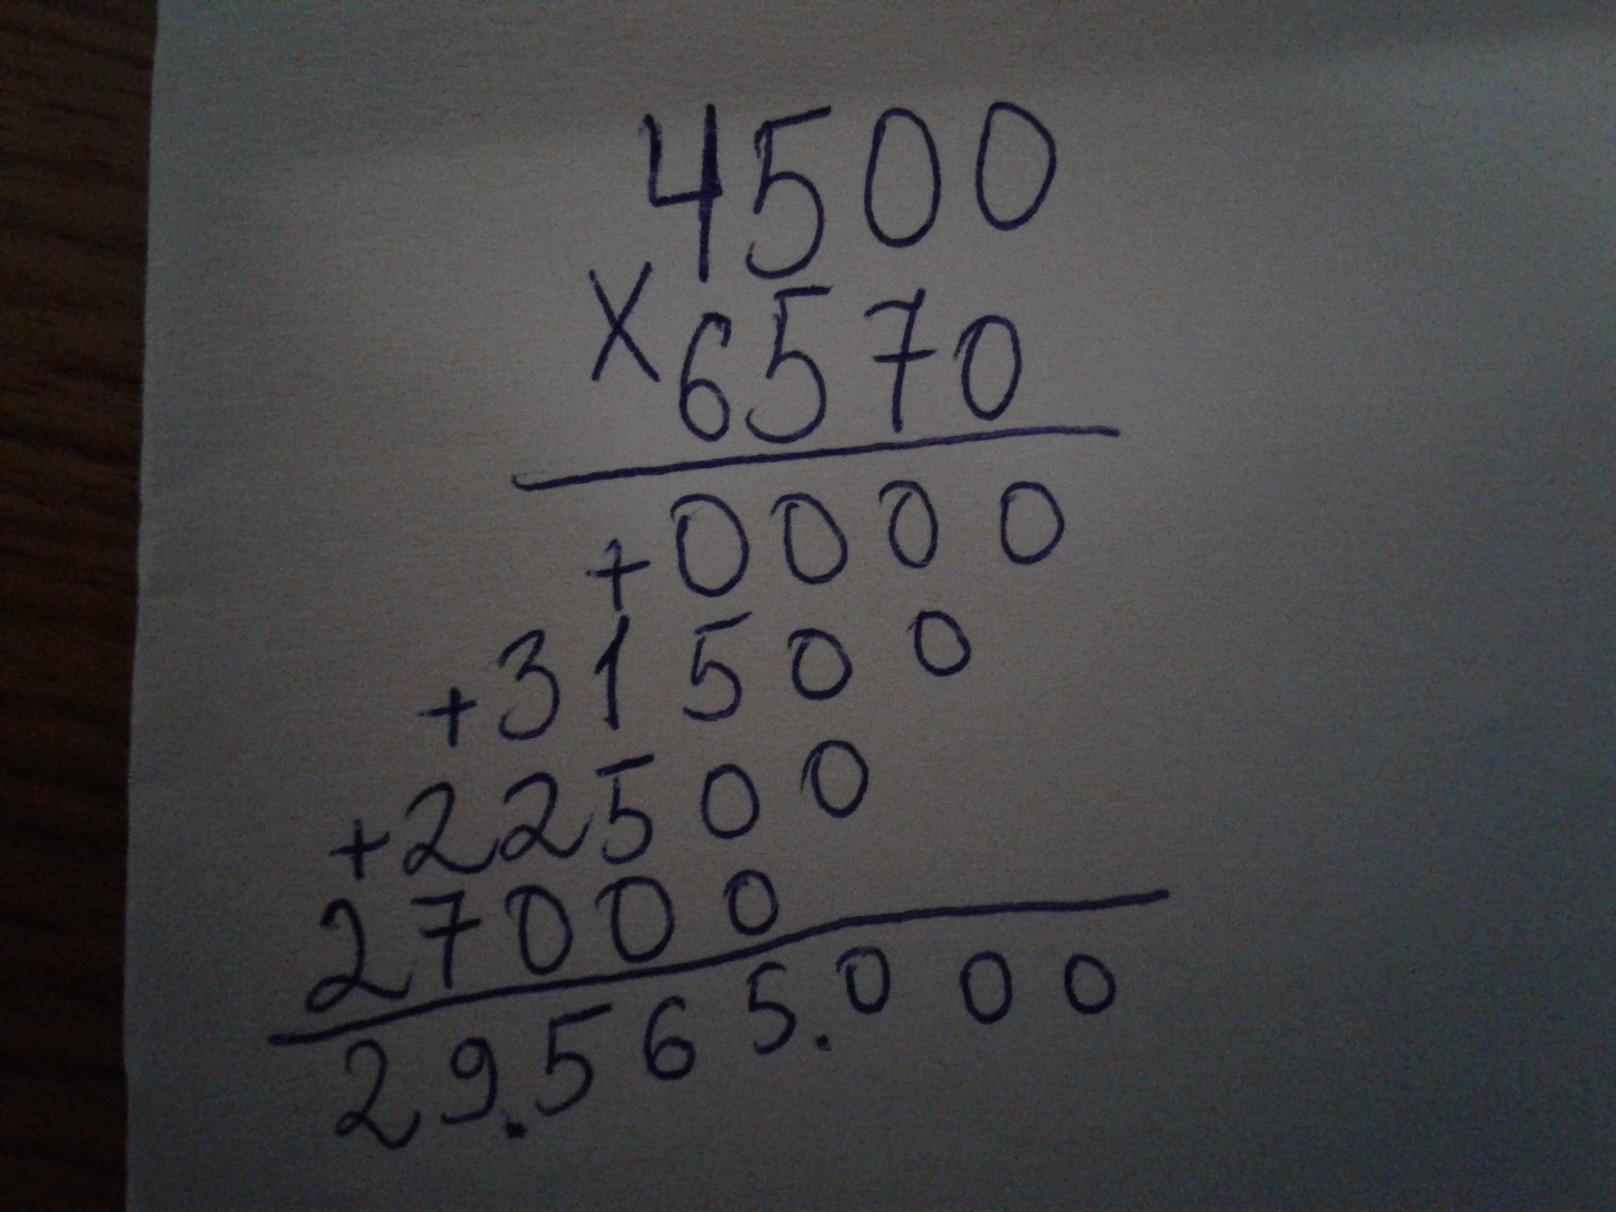 4500
x 6570
+0000
+31500
+22500
27000
29.565.000